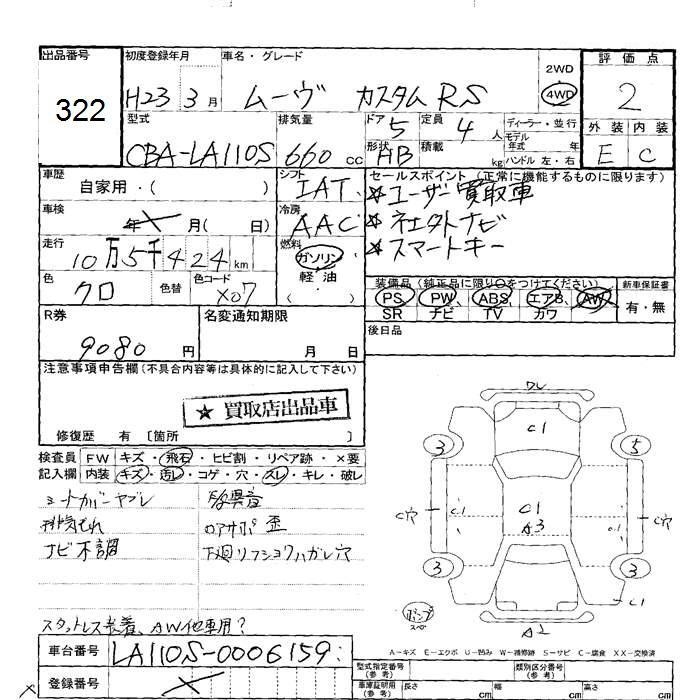 出品番号
322
初度登録年月
H23 3月
車名・グレード
ムーヴ カスタム RS
2WD
4WD
評価点
2
外装 内装
E C
型式
CBA-LA110S
排気量
660 cc
ドア
5
形状
HB
定員
4人
積載
kg
ディーラー・並行
モデル
年式 年
ハンドル 左・右
車歴
自家用・( )
シフト
IAT
セールスポイント (正常に機能するものに限ります)
★ユーザー買取車
★社外ナビ
★スマートキー
車検
年 月( 日)
冷房
AAC
走行
10万5千424km
燃料
ガソリン
軽・油
( )
色
クロ
色替
色コード
X07
装備品(純正品に限り○をつけてください)
PS PW ABS エアB AW
SR ナビ TV カワ
新車保証書
有・無
R券
9080円
名変通知期限
月 日
後日品
注意事項申告欄(不具合内容等は具体的に記入して下さい)
★買取店出品車
修復歴 有 〔箇所 〕
検査員 FW キズ・飛石・ヒビ割・リペア跡・×要
記入欄 内装 キズ・汚レ・コゲ・穴・スレ・キレ・破レ
シートカバーヤブレ
排気もれ
ロアサポ 歪
ナビ不調
スタットレス装着、AW他車用?
ワレ
C1
3
5
C穴
C1
C1
A3
C穴
3
3
C1
A2
A-キズ E-エクボ U-凹み W-補修跡 S-サビ C-腐食 XX-交換済
車台番号
LA110S-0006159
登録番号
型式指定番号
(参考)
類別区分番号
(参考)
車庫証明用
(参考)
長さ cm
幅 cm
高さ cm